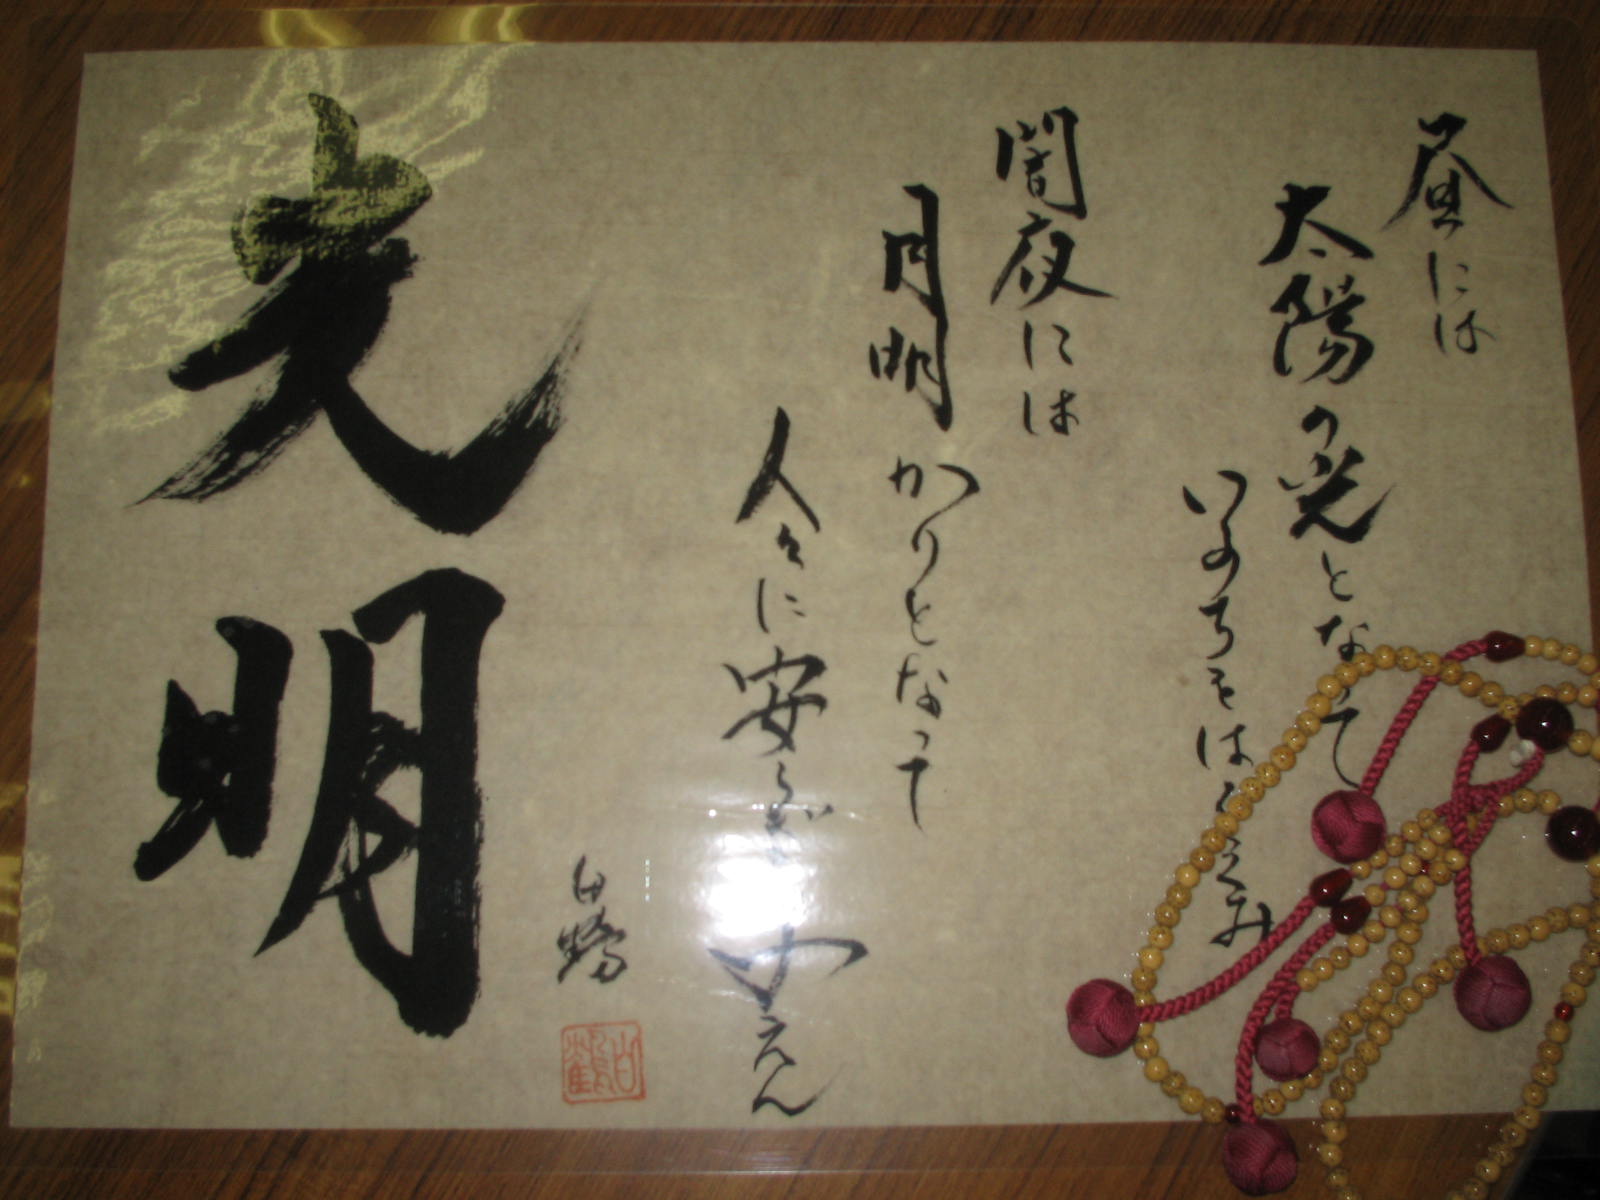 昼には
太陽の光となって
いのちをはぐくみ
闇夜には
月明かりとなって
人々に安らぎ
与えん
光明
白鶴
白鶴